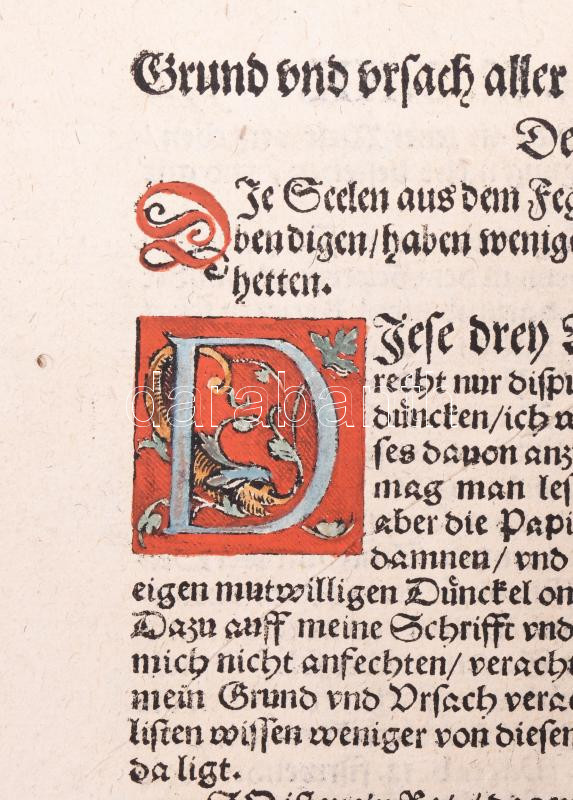 Grund vnd vrsach aller
De
DJe Seelen aus dem Feg
ben digen/haben wenige
hetten.
DJese drey
recht nur dispu
düncken/ich
ses dauon anz
mag man les
aber die Papi
damnen/ vnd
eigen mutwilligen Dünckel on
Dazu auff meine Schrifft vnd
mich nicht anfechten/ veracht
mein Grund vnd Vrsach verac
listen wissen weniger von diesen
da ligt.
darabanth